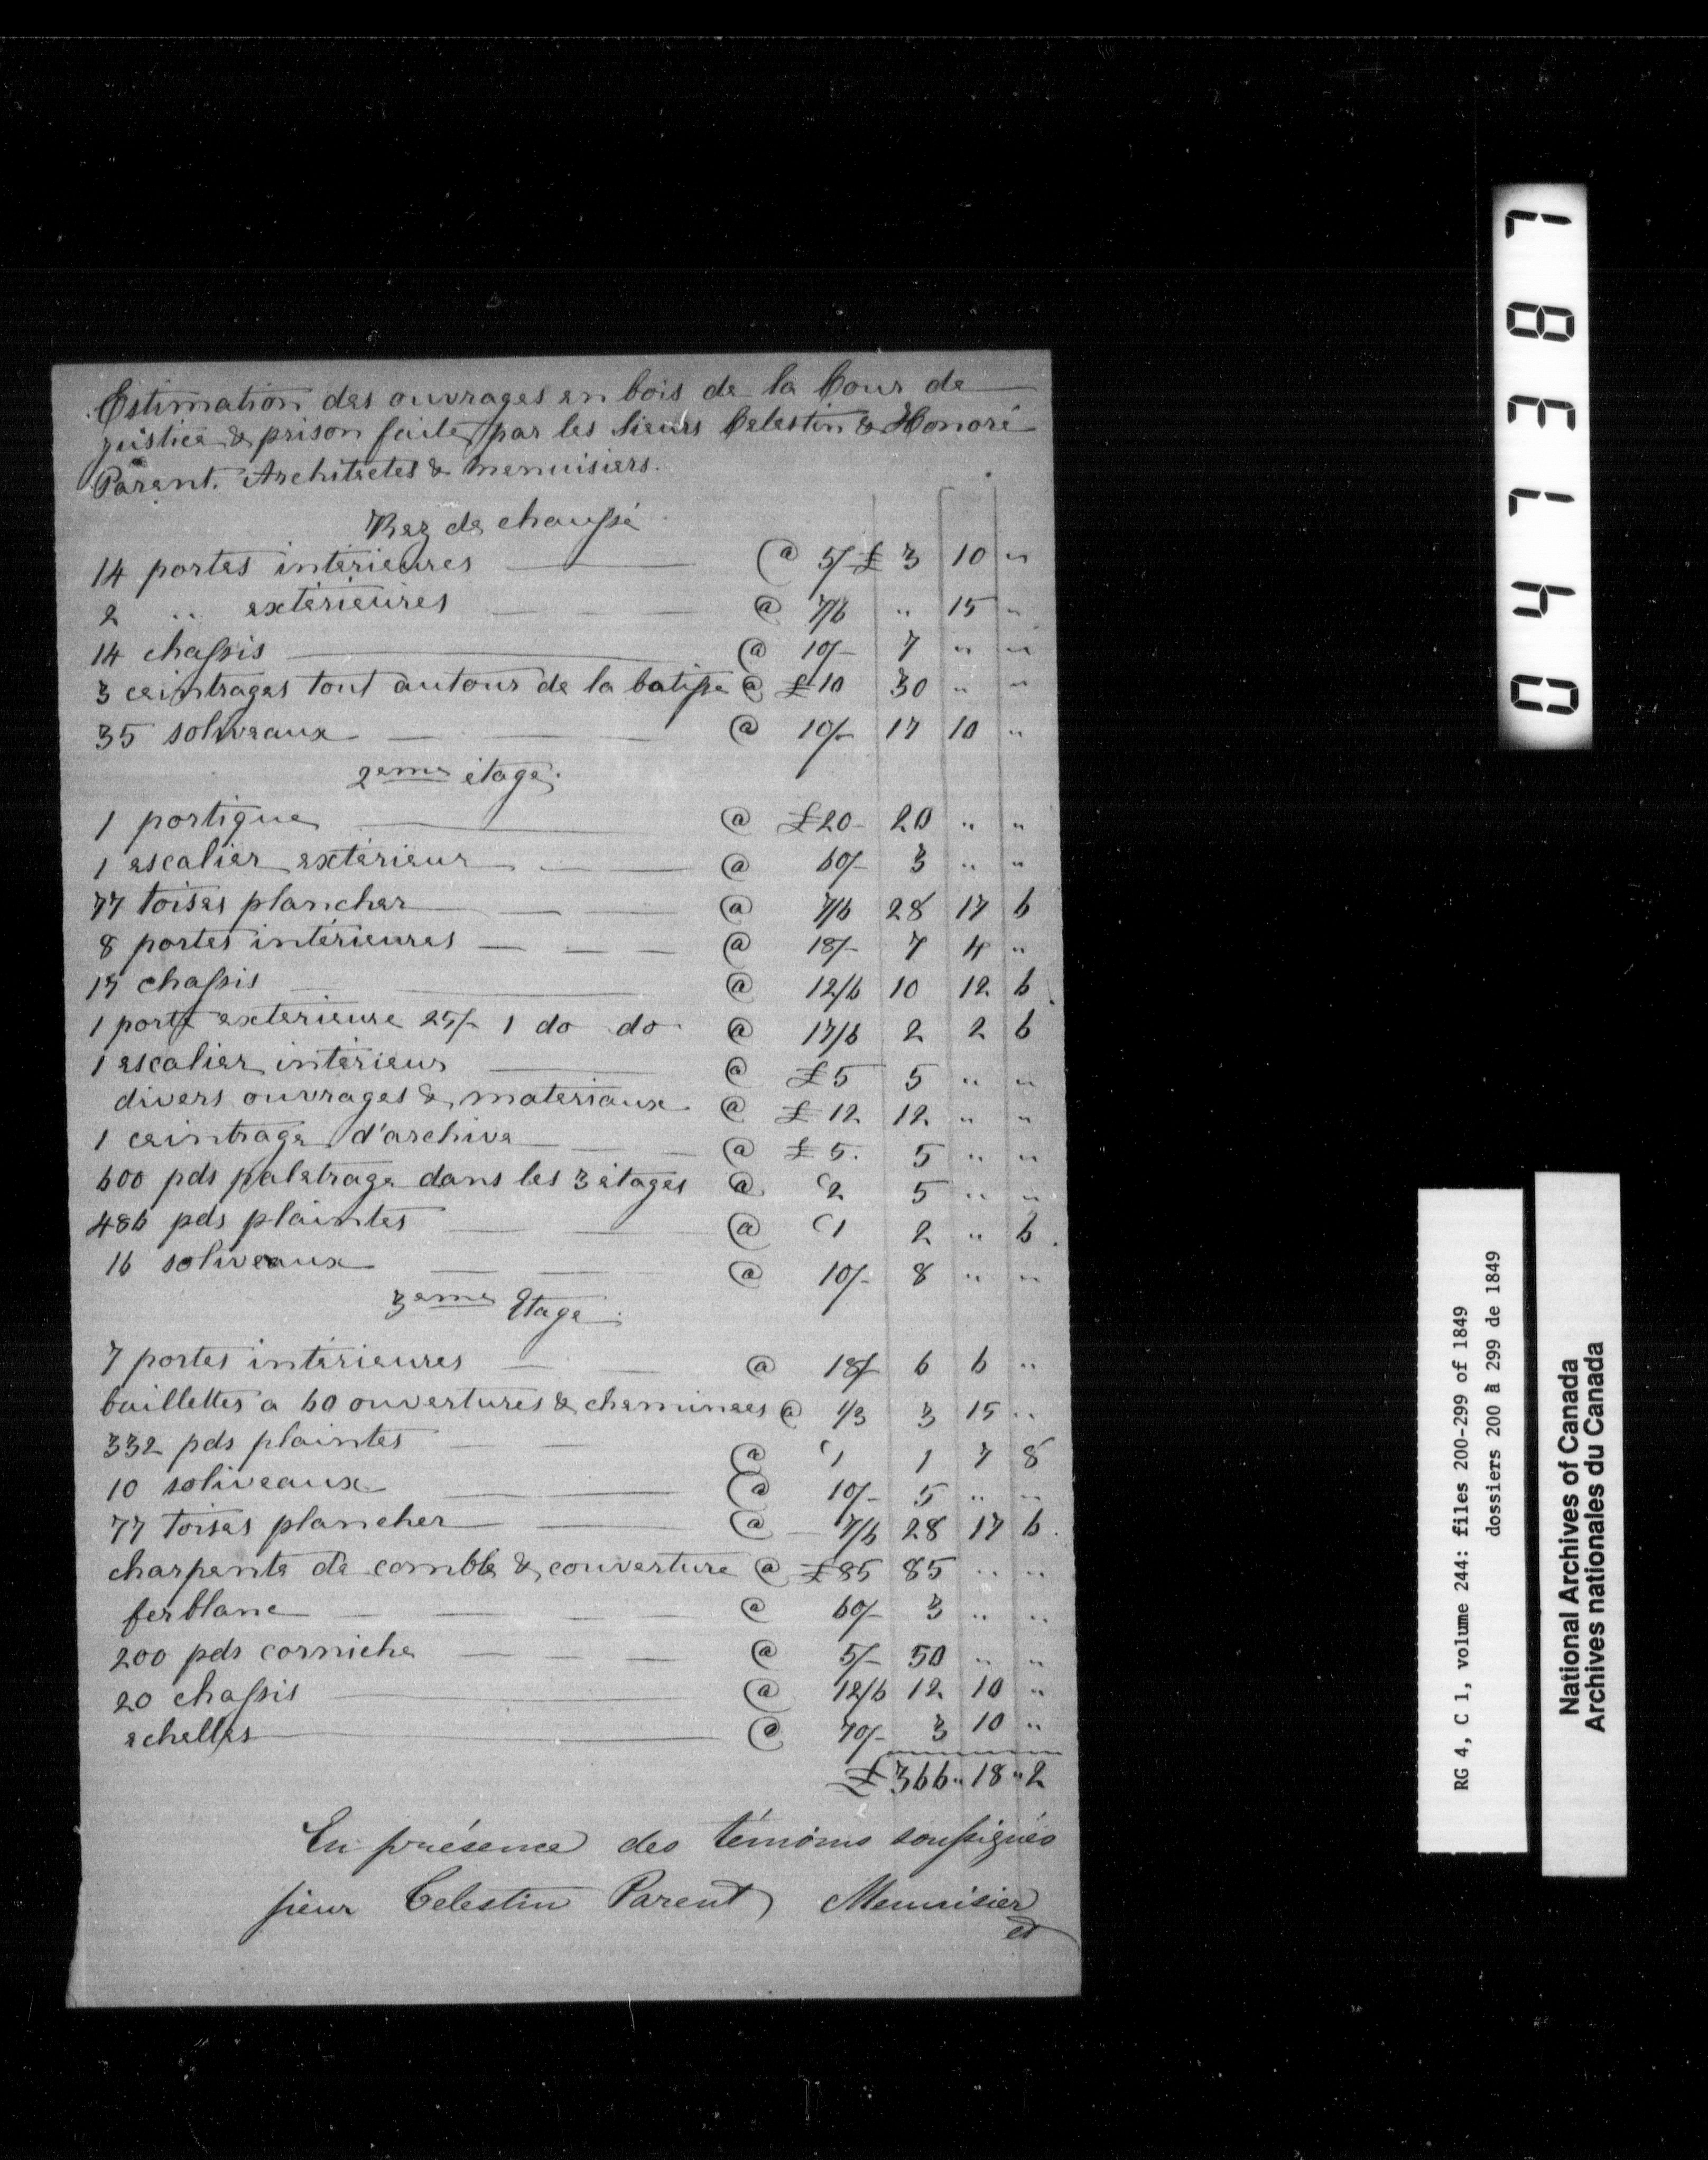 Estimation des ouvrages en bois de la Cour de
justice & prison faite par les Sieurs Celestin & Honoré
Parent. Architectes & menuisiers.
Rez de chaussé
14 portes intérieures @ 5/ £ 3 10 "
2 " extérieures @ 7/6 " 15 "
14 chassis @ 10/- 7 " "
3 ceintrages tout autour de la batisse @ £10 30 " "
35 soliveaux @ 10/- 17 10 "
2eme étage.
1 portique @ £20 20 " "
1 escalier extérieur @ 60/- 3 " "
77 toises plancher @ 7/6 28 17 6
8 portes intérieures @ 18/- 7 4 "
17 chassis @ 12/6 10 12 6
1 porte exterieure 25/- 1 do do @ 17/6 2 2 6
1 escalier intérieur @ £5 5 " "
divers ouvrages & materiaux @ £12 12 " "
1 ceintrage d'archive @ £5. 5 " "
600 pds palatrage dans les 3 étages @ 2 5 " "
486 pds plaintes @ 1 2 " 6
16 soliveaux @ 10/- 8 " "
3eme Etage.
7 portes intérieures @ 18/ 6 6 "
baillettes a 60 ouvertures & cheminees @ 1/3 3 15 "
332 pds plaintes @ 1 1 7 8
10 soliveaux @ 10/- 5 " "
77 toises plancher @ 7/6 28 17 6
charpente de comble & couverture @ £85 85 " "
ferblanc @ 60/- 3 " "
200 pds corniche @ 5/- 50 " "
20 chassis @ 12/6 12 10 "
echelles @ 70/- 3 10 "
£366 " 18 " 2
En présence des témoins soussignés
sieur Celestin Parent Menuisier
et
04137 81
RG 4, C 1, volume 244: files 200-299 of 1849
dossiers 200 à 299 de 1849
National Archives of Canada
Archives nationales du Canada